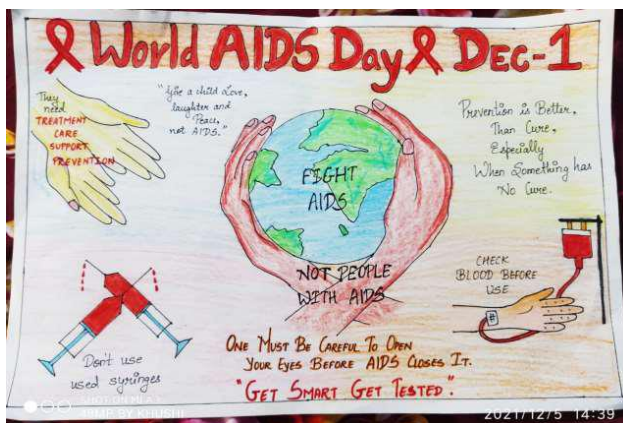 World AIDS Day Dec-1
They
need
TREATMENT
CARE
SUPPORT
PREVENTION
"Give a child Love,
laughter and
Peace,
not AIDS."
Prevention is Better,
Than Cure,
Especially
When Something has
No Cure.
FIGHT
AIDS
NOT PEOPLE
WITH AIDS
CHECK
BLOOD BEFORE
USE
Don't use
used syringes
ONE MUST BE CAREFUL TO OPEN
YOUR EYES BEFORE AIDS CLOSES IT.
"GET SMART GET TESTED".
SHOT ON MI A3
48MP BY KHUSHI
2021/12/5 14:39